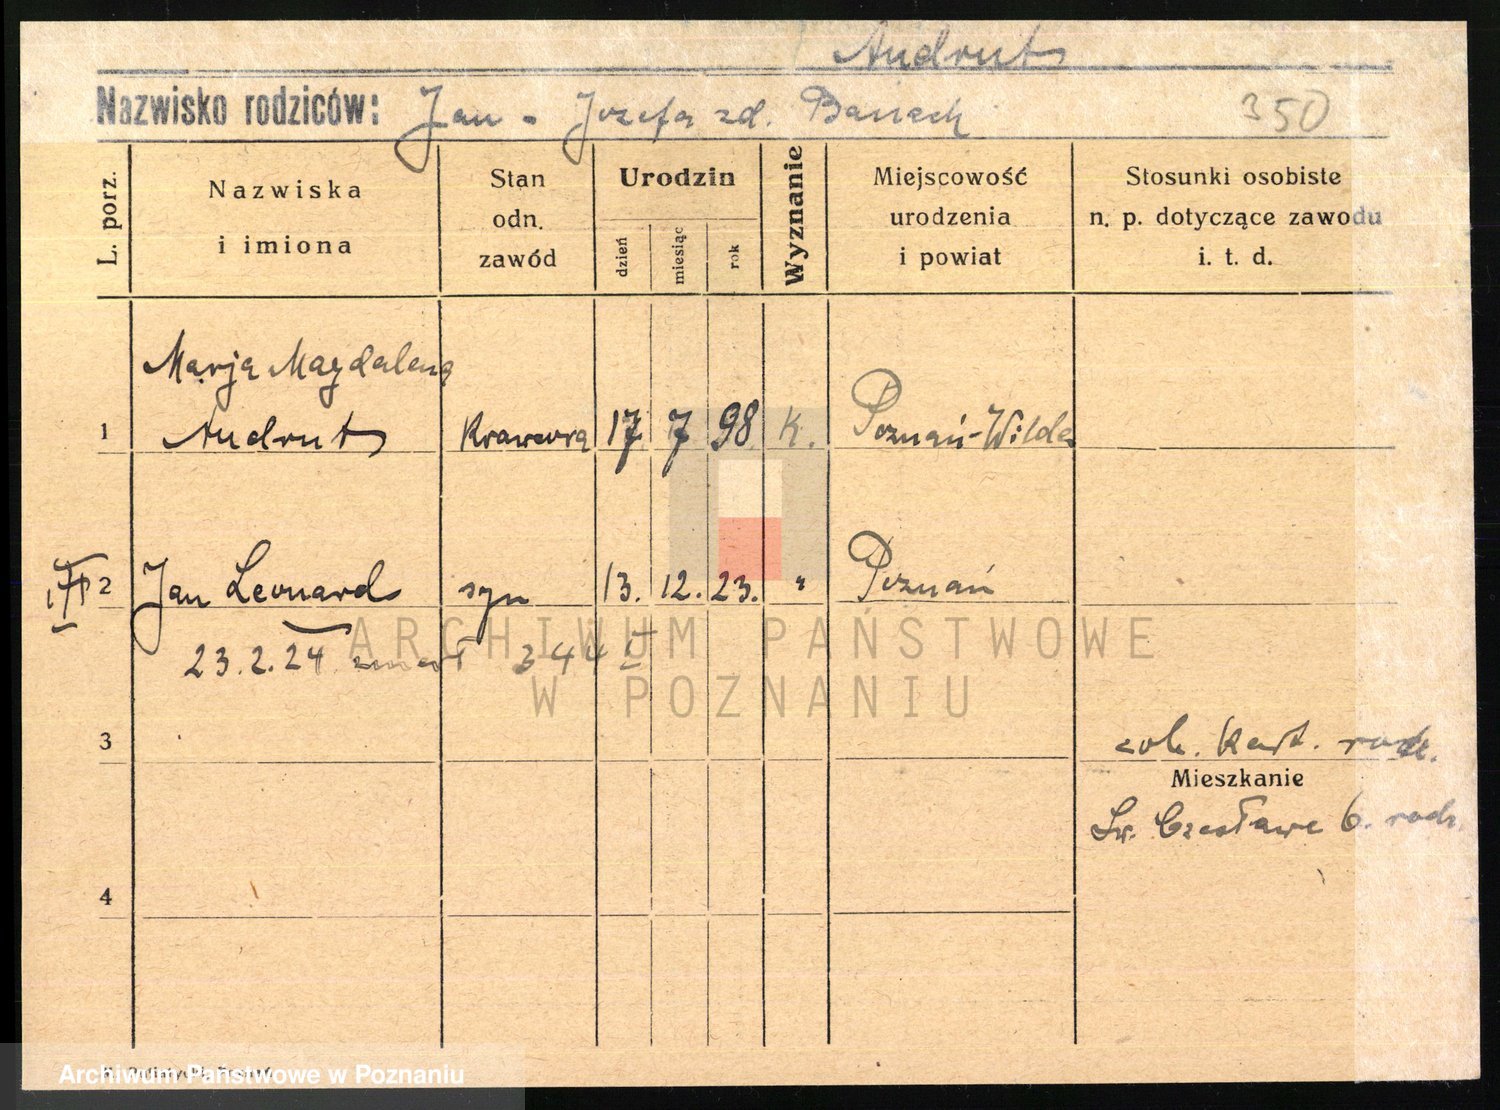 Andrut
Nazwisko rodziców: Jan - Józefa zd. Banach 350
L. porz.
Nazwiska
i imiona
Stan
odn.
zawód
Urodzin
dzień
miesiąc
rok
Wyznanie
Miejscowość
urodzenia
i powiat
Stosunki osobiste
n. p. dotyczące zawodu
i. t. d.
Marja Magdalena
1 Andrut Krawcowa 17 7 98 K. Poznań-Wilda
2 Jan Leonard syn 13. 12. 23. " Poznań
23.2.24 zmarł 344
ARCHIWUM PAŃSTWOWE
W POZNANIU
3 zob. kart. rodz.
Mieszkanie
Św. Czesława 6. rodz.
4
Archiwum Państwowe w Poznaniu